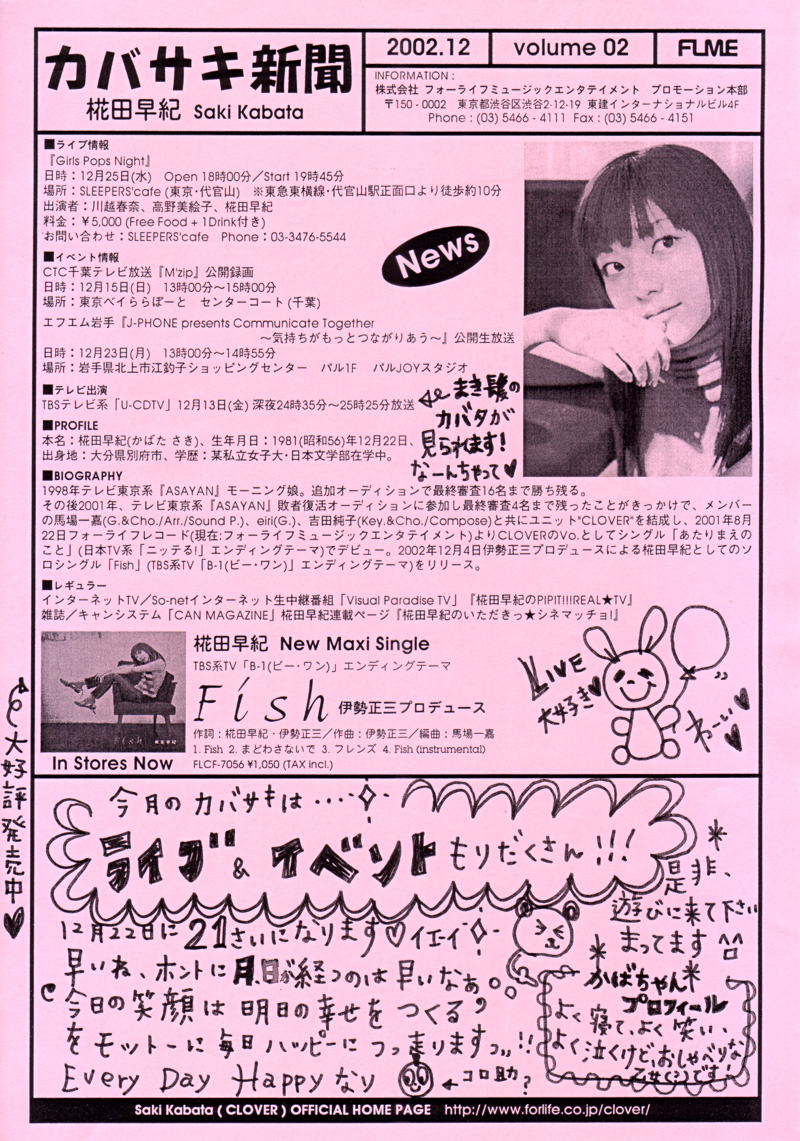 カバサキ新聞
椛田早紀 Saki Kabata
2002.12
volume 02
FLME
INFORMATION :
株式会社 フォーライフミュージックエンタテイメント プロモーション本部
〒150 - 0002 東京都渋谷区渋谷2-12-19 東建インターナショナルビル4F
Phone : (03) 5466 - 4111 Fax : (03) 5466 - 4151
■ライブ情報
『Girls Pops Night』
日時：12月25日(水) Open 18時00分／Start 19時45分
場所：SLEEPERS'cafe (東京・代官山) ※東急東横線・代官山駅正面口より徒歩約10分
出演者：川越春奈、高野美絵子、椛田早紀
料金：￥5,000 (Free Food + 1Drink付き)
お問い合わせ：SLEEPERS'cafe Phone：03-3476-5544
News
■イベント情報
CTC千葉テレビ放送『M'zip』公開録画
日時：12月15日(日) 13時00分〜15時00分
場所：東京ベイららぽーと センターコート (千葉)
エフエム岩手『J-PHONE presents Communicate Together
〜気持ちがもっとつながりあう〜』公開生放送
日時：12月23日(月) 13時00分〜14時55分
場所：岩手県北上市江釣子ショッピングセンター パル1F パルJOYスタジオ
■テレビ出演
TBSテレビ系「U-CDTV」12月13日(金) 深夜24時35分〜25時25分放送
まき髪の
カバタが
見られます!
なーんちゃって♥
■PROFILE
本名：椛田早紀(かばた さき)、生年月日：1981(昭和56)年12月22日、
出身地：大分県別府市、学歴：某私立女子大・日本文学部在学中。
■BIOGRAPHY
1998年テレビ東京系『ASAYAN』モーニング娘。追加オーディションで最終審査16名まで勝ち残る。
その後2001年、テレビ東京系『ASAYAN』敗者復活オーディションに参加し最終審査4名まで残ったことがきっかけで、メンバー
の馬場一嘉(G.&Cho./Arr./Sound P.)、eiri(G.)、吉田純子(Key.&Cho./Compose)と共にユニット"CLOVER"を結成し、2001年8月
22日フォーライフレコード(現在:フォーライフミュージックエンタテイメント)よりCLOVERのVo.としてシングル「あたりまえの
こと」(日本TV系「ニッテる!」エンディングテーマ)でデビュー。2002年12月4日伊勢正三プロデュースによる椛田早紀としてのソ
ロシングル「Fish」(TBS系TV「B-1(ビー・ワン)」エンディングテーマ)をリリース。
■レギュラー
インターネットTV／So-netインターネット生中継番組「Visual Paradise TV」『椛田早紀のPIPIT!!!REAL★TV』
雑誌／キャンシステム「CAN MAGAZINE」椛田早紀連載ページ『椛田早紀のいただきっ★シネマッチョ!』
Fish 椛田早紀
In Stores Now
椛田早紀 New Maxi Single
TBS系TV「B-1(ビー・ワン)」エンディングテーマ
Fish 伊勢正三プロデュース
作詞：椛田早紀・伊勢正三／作曲：伊勢正三／編曲：馬場一嘉
1. Fish 2. まどわさないで 3. フレンズ 4. Fish (instrumental)
FLCF-7056 ¥1,050 (TAX incl.)
LIVE
大好き♥
わーい♥
大好評発売中♥
今月のカバサキは・・・・
ライブ & イベント もりだくさん!!!
是非、
遊びに来て下さい
まってます^^
12月22日に21さいになります♡イエイ
早いね、ホントに月日が経つのは早いなぁ
今日の笑顔は明日の幸せをつくる
をモットーに毎日ハッピーにつっ走りますっ!!
Every Day Happyなり
←コロ助?
かばちゃん
プロフィール
よく寝て、よく笑い、
よく泣くけど、おしゃべりな
乙女(?)です!
Saki Kabata ( CLOVER ) OFFICIAL HOME PAGE http://www.forlife.co.jp/clover/